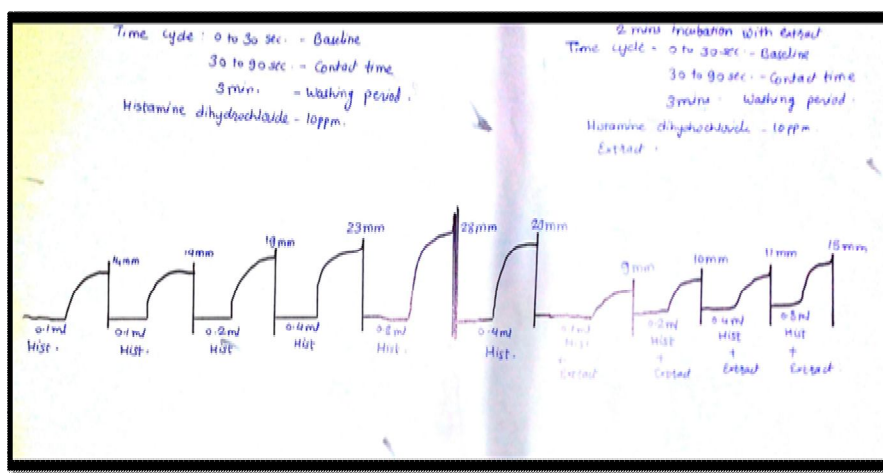 Time cycle : 0 to 30 sec. - Baseline
30 to 90 sec. - Contact time
3 min. - Washing period.
Histamine dihydrochloride - 10ppm.
2 mins Incubation with extract
Time cycle - 0 to 30 sec - Baseline
30 to 90 sec. - Contact time
3 mins. Washing period.
Histamine dihydrochloride - 10ppm.
Extract.
14mm 14mm 19mm 23mm 28mm 23mm 9mm 10mm 11mm 15mm
0.1ml 0.1ml 0.2ml 0.4ml 0.8ml 0.4ml 0.1ml 0.2ml 0.4ml 0.8ml
Hist. Hist. Hist Hist Hist. Hist. Hist Hist Hist Hist
+ + + +
Extract Extract Extract Extract.